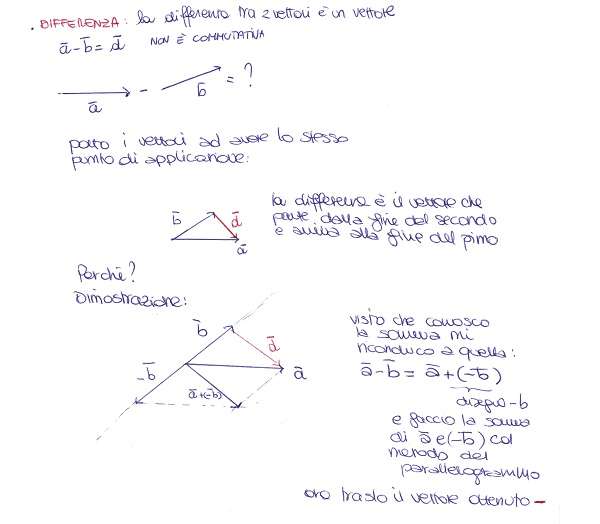 . DIFFERENZA: la differenza tra 2 vettori è un vettore
a̅ - b̅ = d̅ NON È COMMUTATIVA
a̅ - b̅ = ?
porto i vettori ad avere lo stesso
punto di applicazione:
b̅ d̅ a̅
la differenza è il vettore che
parte dalla fine del secondo
e arriva alla fine del pimo
Perchè?
Dimostrazione:
b̅ d̅ a̅
-b̅ a̅+(-b̅)
visto che conosco
la somma mi
riconduco a quella:
a̅ - b̅ = a̅ + (-b̅)
disegno -b
e faccio la somma
di a̅ e (-b̅) col
metodo del
parallelogrammo
ora traslo il vettore ottenuto -